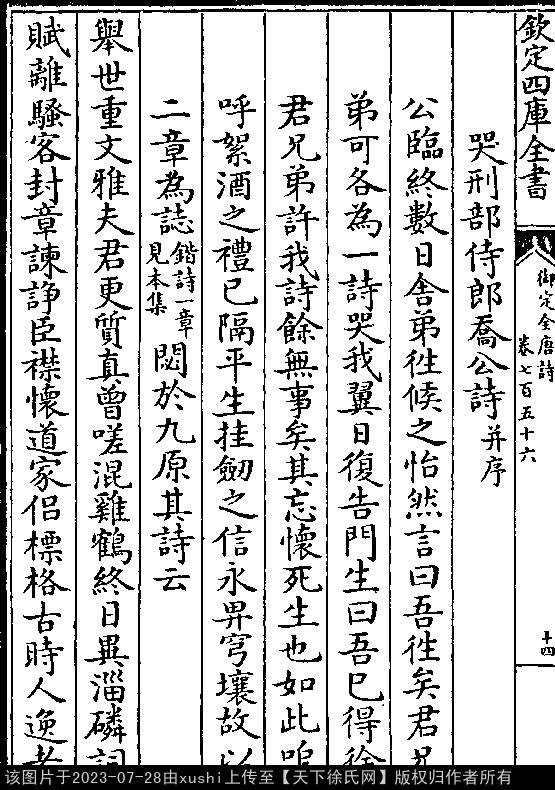 欽定四庫全書
御定全唐詩
卷七百五十六
十四
哭刑部侍郎喬公詩并序
公臨終數日舍弟徃候之怡然言曰吾徃矣君兄
弟可各為一詩哭我翼日復告門生曰吾已得徐
君兄弟許我詩餘無事矣其忘懷死生也如此嗚
呼絮酒之禮已隔平生挂劒之信永畀穹壤故以
二章為誌鍇詩一章見本集閟於九原其詩云
舉世重文雅夫君更質真曾嗟混雞鶴終日異淄磷詞
賦離騷客封章諫諍臣襟懷道家侣標格古時人逸老
该图片于2023-07-28由xushi上传至【天下徐氏网】版权归作者所有